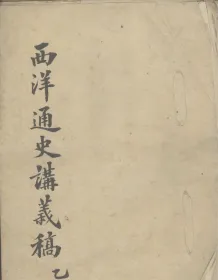 西洋通史講義稿 乙